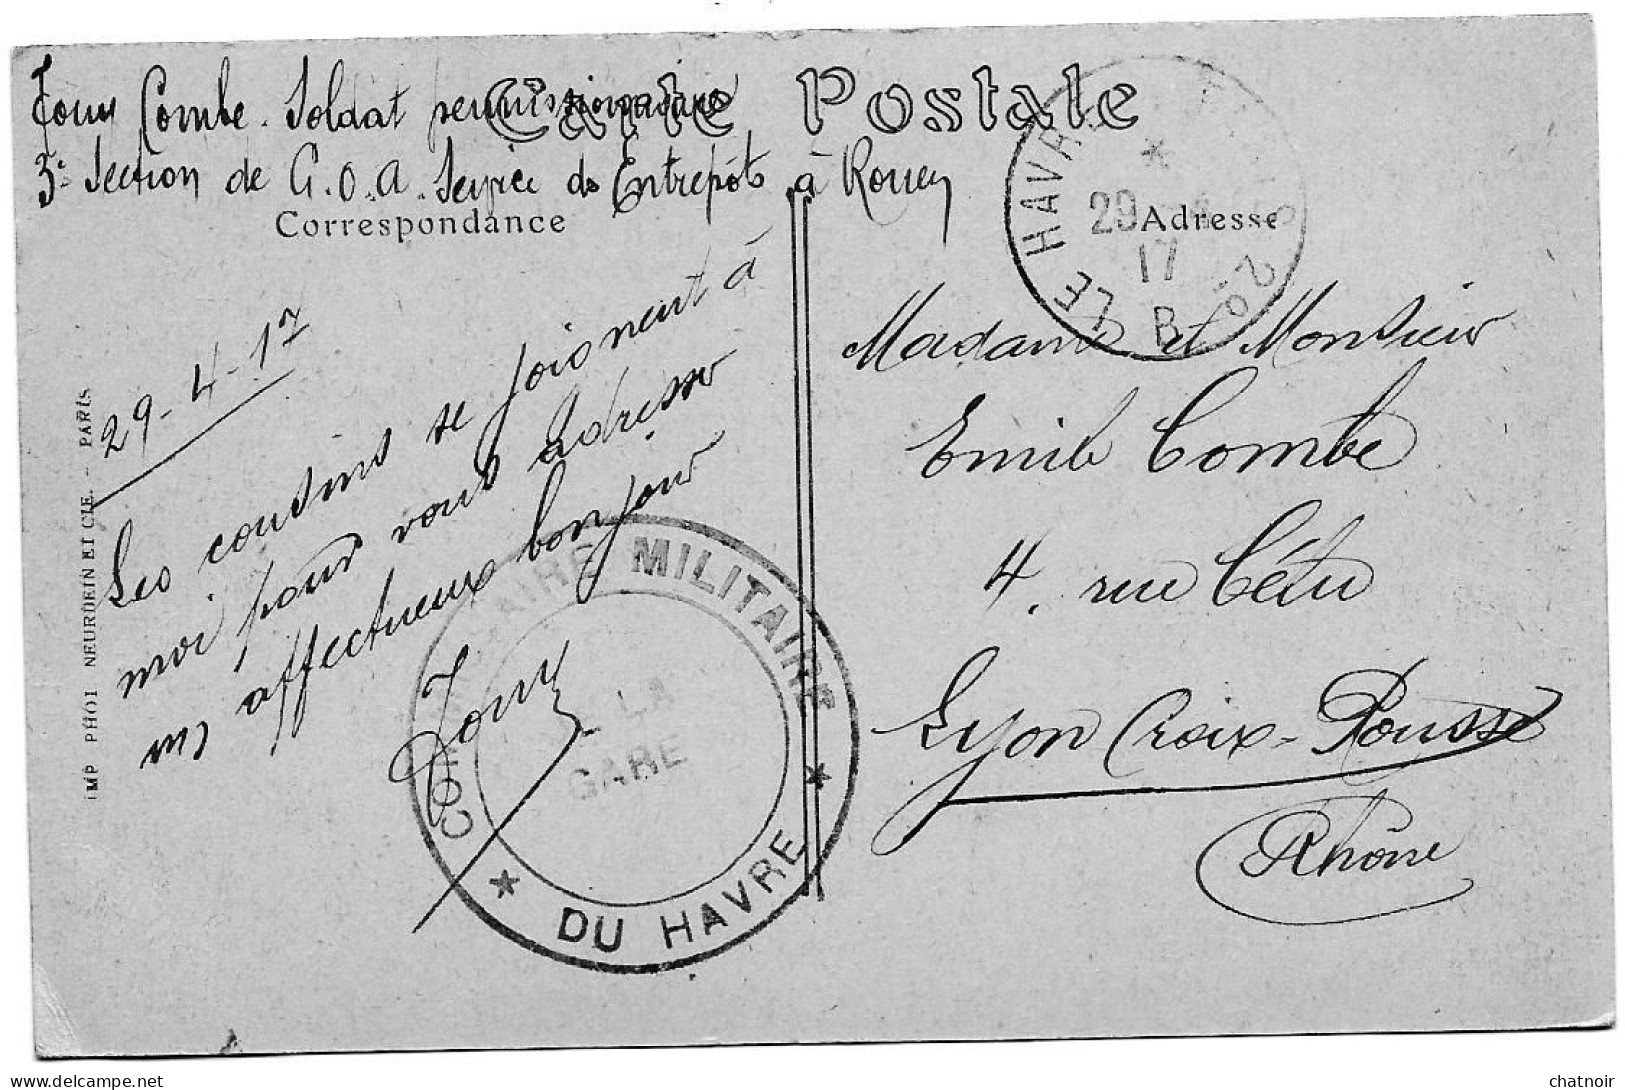 Tony Combe. Soldat permissionnaire
Carte Postale
3e Section de C.O.A. Service des Entrepôts à Rouen
Correspondance
Adresse
LE HAVRE
29
17
B
29-4-17
Les cousins se joignent à
moi pour vous adresser
ms affectueux bonjour
Tony
Madame et Monsieur
Emile Combe
4, rue Célu
Lyon Croix-Rousse
Rhône
COMMISSAIRE MILITAIRE
DE LA
GARE
DU HAVRE
IMP PHOT NEURDEIN ET CIE. - PARIS
chatnoir